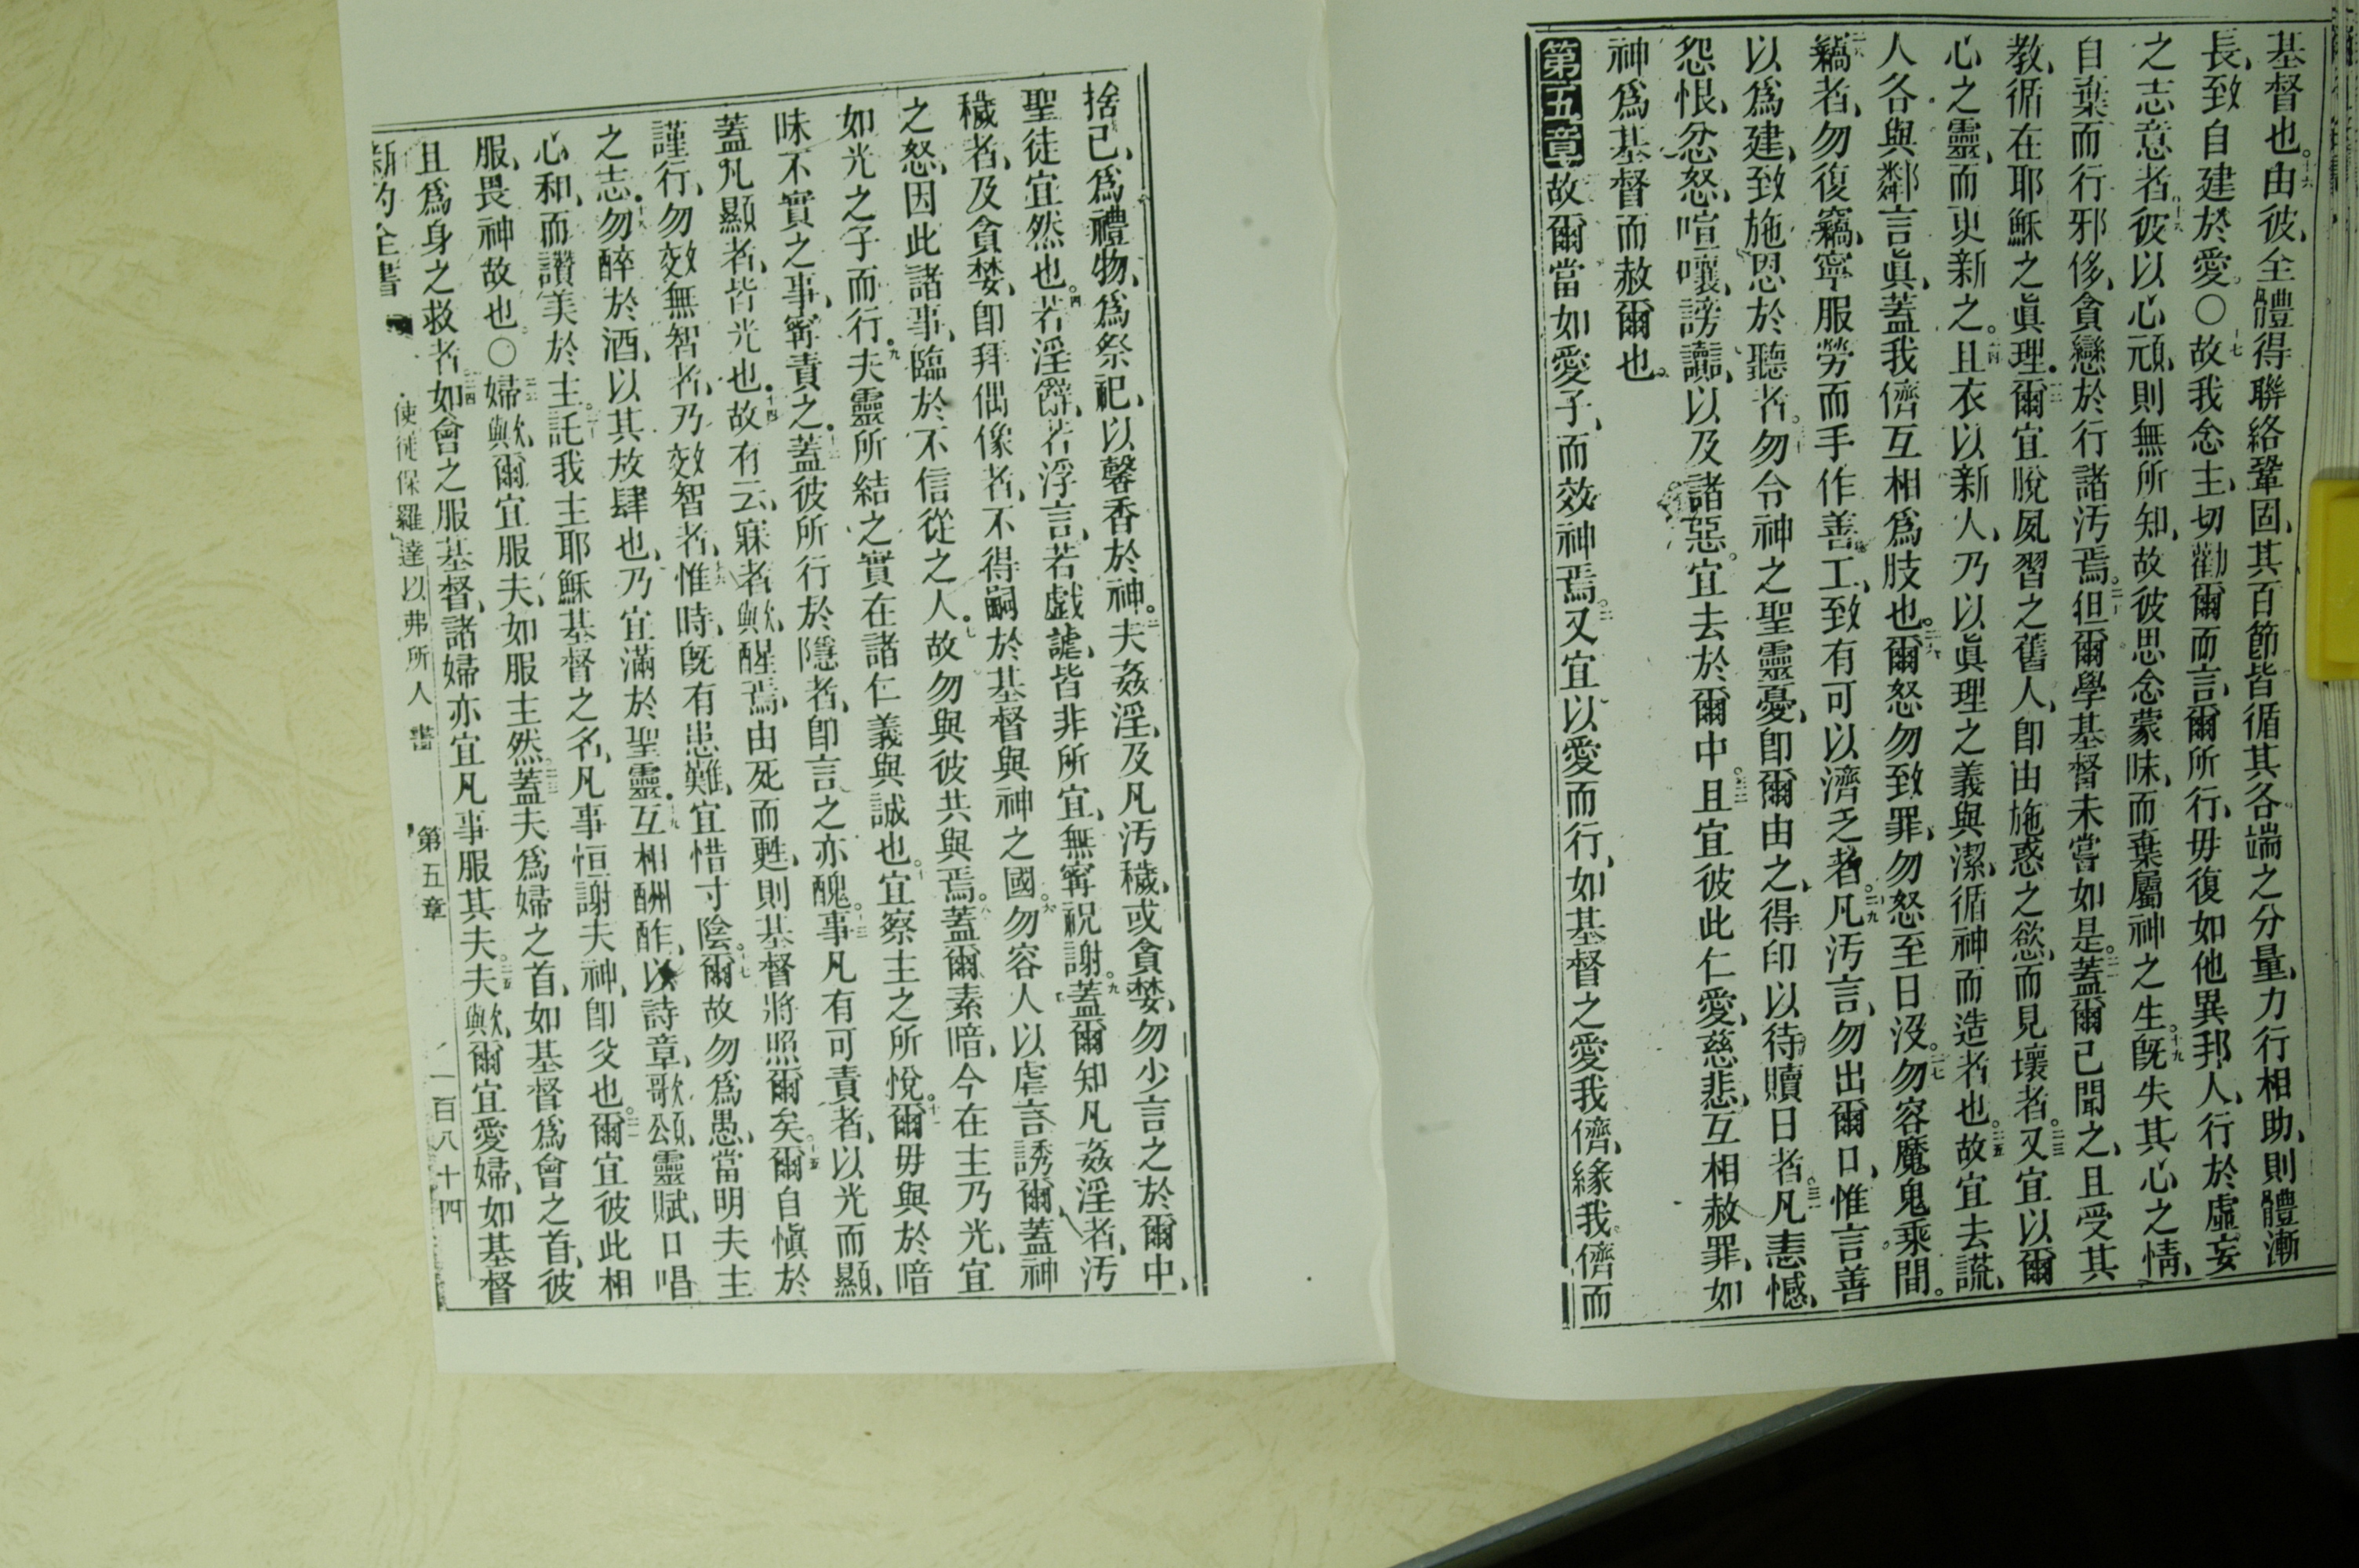 基督也。十六由彼、全體得聯絡鞏固、其百節皆循其各端之分量、力行相助、則體漸
長、致自建於愛。〇十七故我念主、切勸爾而言、爾所行、毋復如他異邦人、行於虛妄
之志意者。十八彼以心頑、則無所知、故彼思念蒙昧、而棄屬神之生。十九旣失其心之情、
自棄而行邪侈、貪戀於行諸汚焉。二十但爾學基督未嘗如是。二一蓋爾已聞之、且受其
教、循在耶穌之眞理。二二爾宜脫夙習之舊人、卽由施惑之慾、而見壞者。二三又宜以爾
心之靈、而更新之。二四且衣以新人、乃以眞理之義與潔、循神而造者也。二五故宜去謊、
人各與鄰言眞、蓋我儕互相爲肢也。二六爾怒勿致罪、勿怒至日沒。二七勿容魔鬼乘間。
二八竊者、勿復竊、寧服勞而手作善工、致有可以濟乏者。二九凡汚言、勿出爾口、惟言善
以爲建、致施恩於聽者。三十勿令神之聖靈憂、卽爾由之、得印以待贖日者。三一凡恚憾、
怨恨、忿怒、喧嚷、謗讟、以及諸惡。宜去於爾中。三二且宜彼此仁愛、慈悲、互相赦罪、如
神爲基督而赦爾也。
第五章故爾當如愛子、而效神焉。二又宜以愛而行、如基督之愛我儕、緣我儕而
捨己、爲禮物、爲祭祀、以馨香於神。三夫姦淫、及凡汚穢、或貪婪、勿少言之於爾中、
聖徒宜然也。四若淫辭、若浮言、若戲謔、皆非所宜、無寧祝謝。五蓋爾知凡姦淫者、汚
穢者、及貪婪、卽拜偶像者、不得嗣於基督與神之國。六勿容人以虛言誘爾、蓋神
之怒、因此諸事、臨於不信從之人。七故勿與彼共與焉。八蓋爾素暗、今在主乃光、宜
如光之子而行。九夫靈所結之實在諸仁義與誠也。十宜察主之所悅。十一爾毋與於暗
昧不實之事、寧責之。十二蓋彼所行於隱者、卽言之亦醜。十三事凡有可責者、以光而顯、
蓋凡顯者、皆光也。十四故有云、寐者歟、醒焉、由死而甦、則基督將照爾矣。十五爾自愼於
謹行、勿效無智者、乃效智者、十六惟時、旣有患難、宜惜寸陰。十七爾故勿爲愚、當明夫主
之志。十八勿醉於酒、以其放肆也、乃宜滿於聖靈。十九互相酬酢、以詩章、歌頌、靈賦、口唱
心和、而讚美於主。二十託我主耶穌基督之名、凡事恒謝夫神、卽父也。二一爾宜彼此相
服、畏神故也。〇二二婦歟、爾宜服夫、如服主然。二三蓋夫爲婦之首、如基督爲會之首、彼
且爲身之救者。二四如會之服基督、諸婦亦宜凡事服其夫。二五夫歟、爾宜愛婦、如基督
新約全書 使徒保羅達以弗所人書 第五章 一百八十四